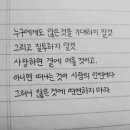 누구에게도 많은것을 기대하지 말것
그리고 질투하지 말것.
사랑하면 곁에 머물 것이고.
아니면 떠나는 것이 사람의 인연이다
그러니 많은 것에 연연하지 마라